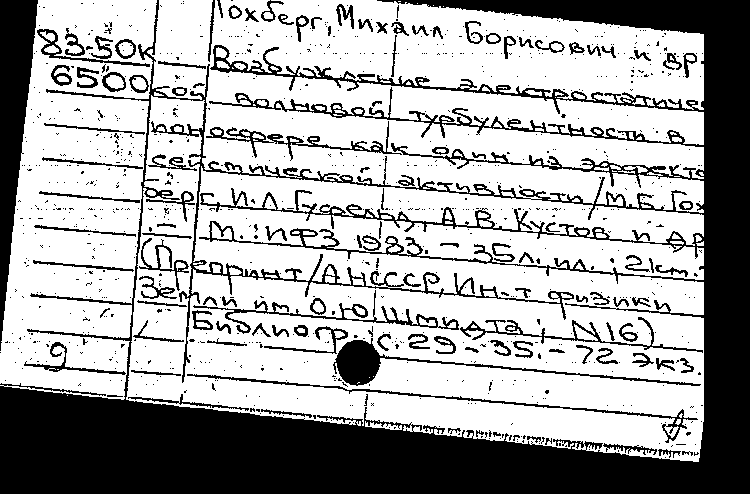 Гохберг, Михаил Борисович и др.
83-50к
6500
Возбуждение электростатичес
кой волновой турбулентности в
ионосфере как один из эффекто
сейсмической активности / М.Б. Гох
берг, И.Л. Гуфельд, А.В. Кустов и др
.- М.: ИФЗ, 1983. - 35л., ил.; 21см.-
(Препринт / АН СССР, Ин-т физики
Земли им. О.Ю. Шмидта; N16).
Библиогр.: с. 29-35. - 72 экз.
9